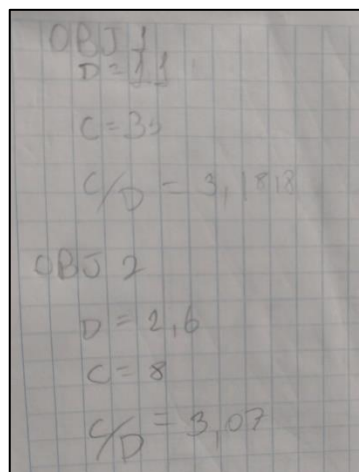 OBJ 1
D = 11
C = 35
C/D = 3,1818
OBJ 2
D = 2,6
C = 8
C/D = 3,07